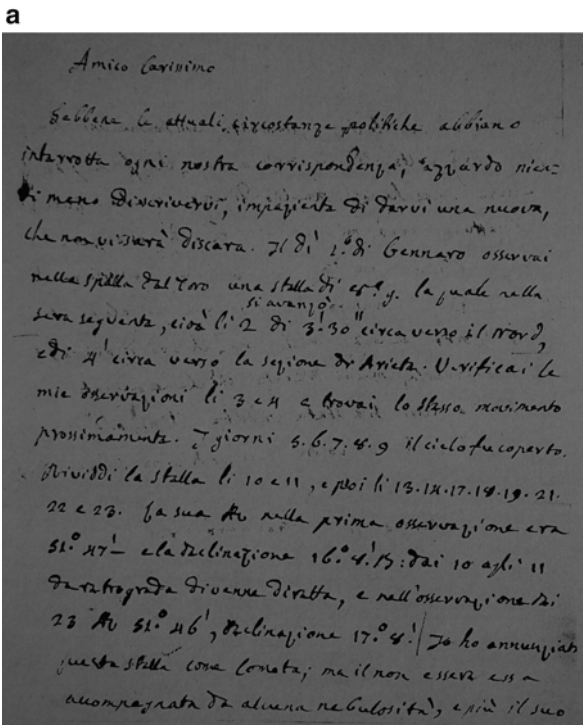 a
Amico Carissimo
Sebbene le attuali circostanze politiche abbiano
interrotta ogni nostra corrispondenza, azzardo nien=
di meno di scrivervi, impaziente di darvi una nuova,
che non vi sarà discara. Il dì 1.º di Gennaro osservai
nella spalla del Toro una stella di 8.ª g. la quale nella
si avanzò
sera seguente, cioè li 2 di 3' 30" circa verso il Nord,
e di 4' circa verso la sezione di Ariete. Verificai le
mie osservazioni li 3 e 4 e trovai lo stesso movimento
prossimamente. I giorni 5. 6. 7. 8. 9 il cielo fu coperto.
Rividdi la stella li 10 e 11, e poi li 13. 14. 17. 18. 19. 21.
22 e 23. La sua AR nella prima osservazione era
51.º 47' e la declinazione 16.º 8' B: dai 10 agli 11
da retrograda divenne diretta, e nell'osservazione dei
23 AR 51.º 46', declinazione 17.º 8' Io ho annunziato
questa stella come Cometa; ma il non essere essa
accompagnata da alcuna nebulosità, e più il suo